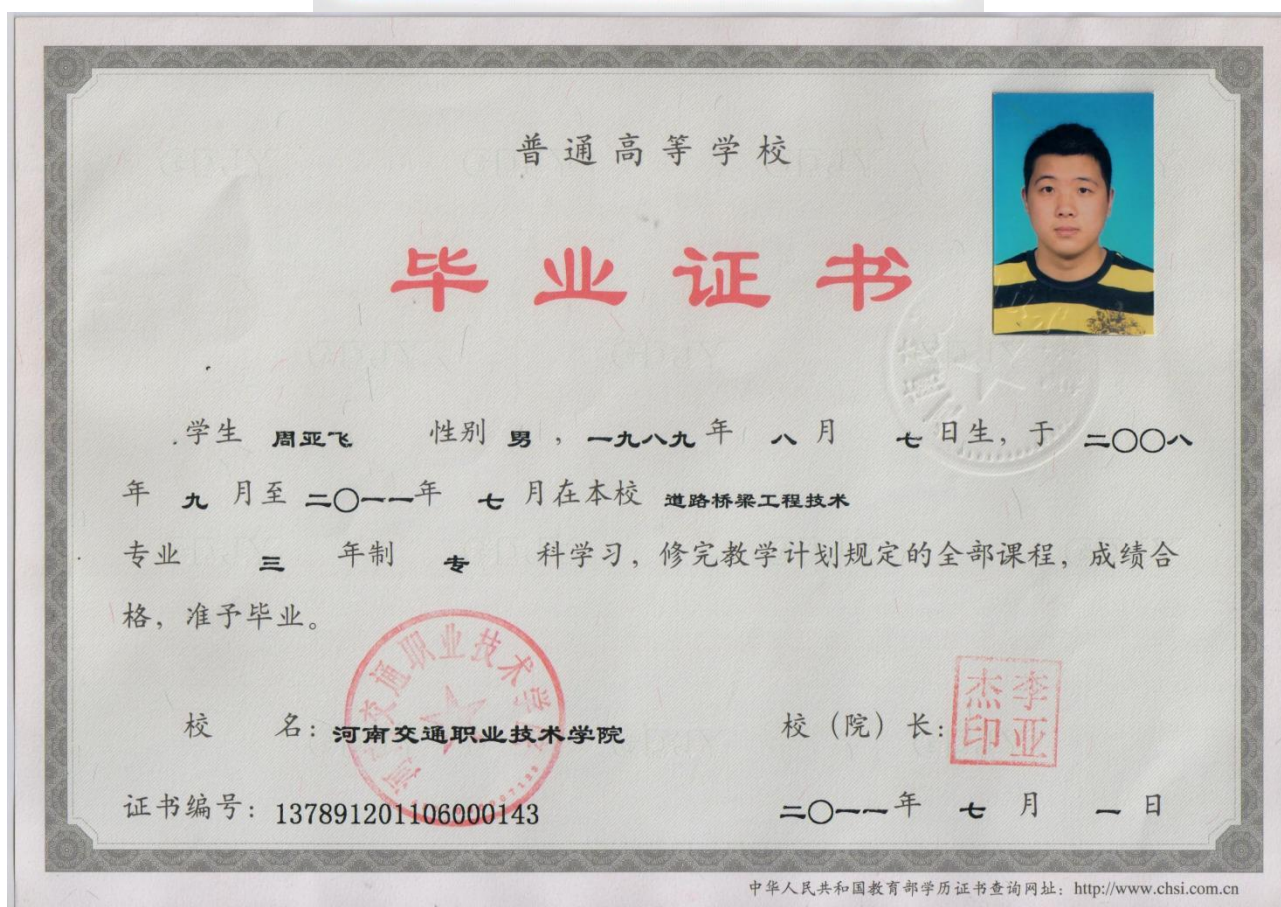 普通高等学校
毕业证书
学生 周亚飞 性别 男 ，一九八九 年 八 月 七 日生，于 二〇〇八
年 九 月至 二〇一一年 七 月在本校 道路桥梁工程技术
专业 三 年制 专 科学习，修完教学计划规定的全部课程，成绩合
格，准予毕业。
河南交通职业技术学院
校 名：河南交通职业技术学院 校（院）长：
李亚杰印
证书编号：137891201106000143 二〇一一年 七 月 一 日
中华人民共和国教育部学历证书查询网址：http://www.chsi.com.cn